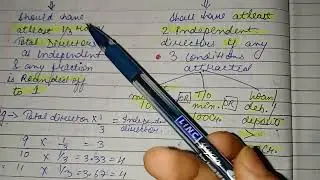 Should have
atleast 1/3 
Total Directors
as Independent
& any fraction
is Rounded off
to 1
Shall have atleast
2 Independent
directors if any
3 conditions
attracted
T/O
OR
min.
OR
Loan
des /
deposit
Total director × 1/3 = Independent
director
9 × 1/3 = 3
10 × 1/3 = 3.33 = 4
11 × 1/3 = 3.67 = 4
LINC